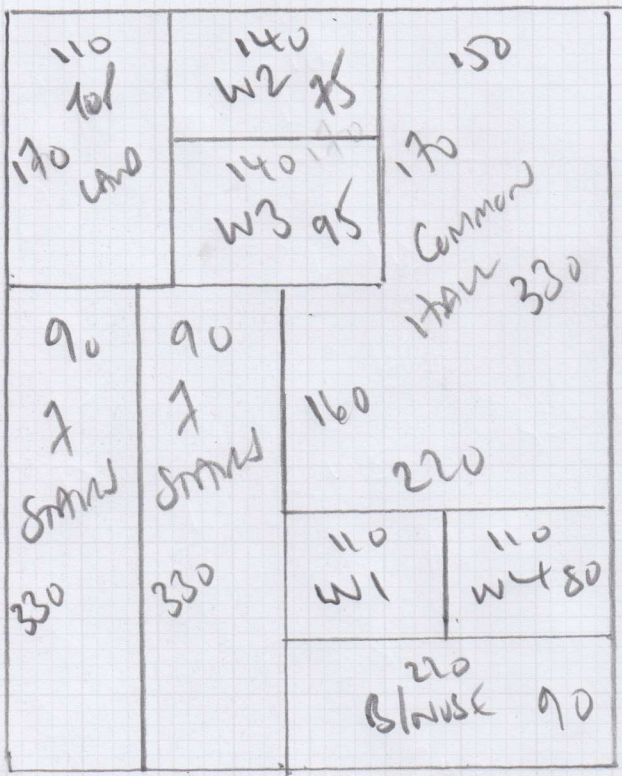 110
TOP
170 LAND
140
W2 75
140 170
W3 95
150
170
COMMON
HALL 330
90
7
STAIRS
330
90
7
STAIRS
330
160
220
110
W1
110
W4 80
220
B/NOSE 90